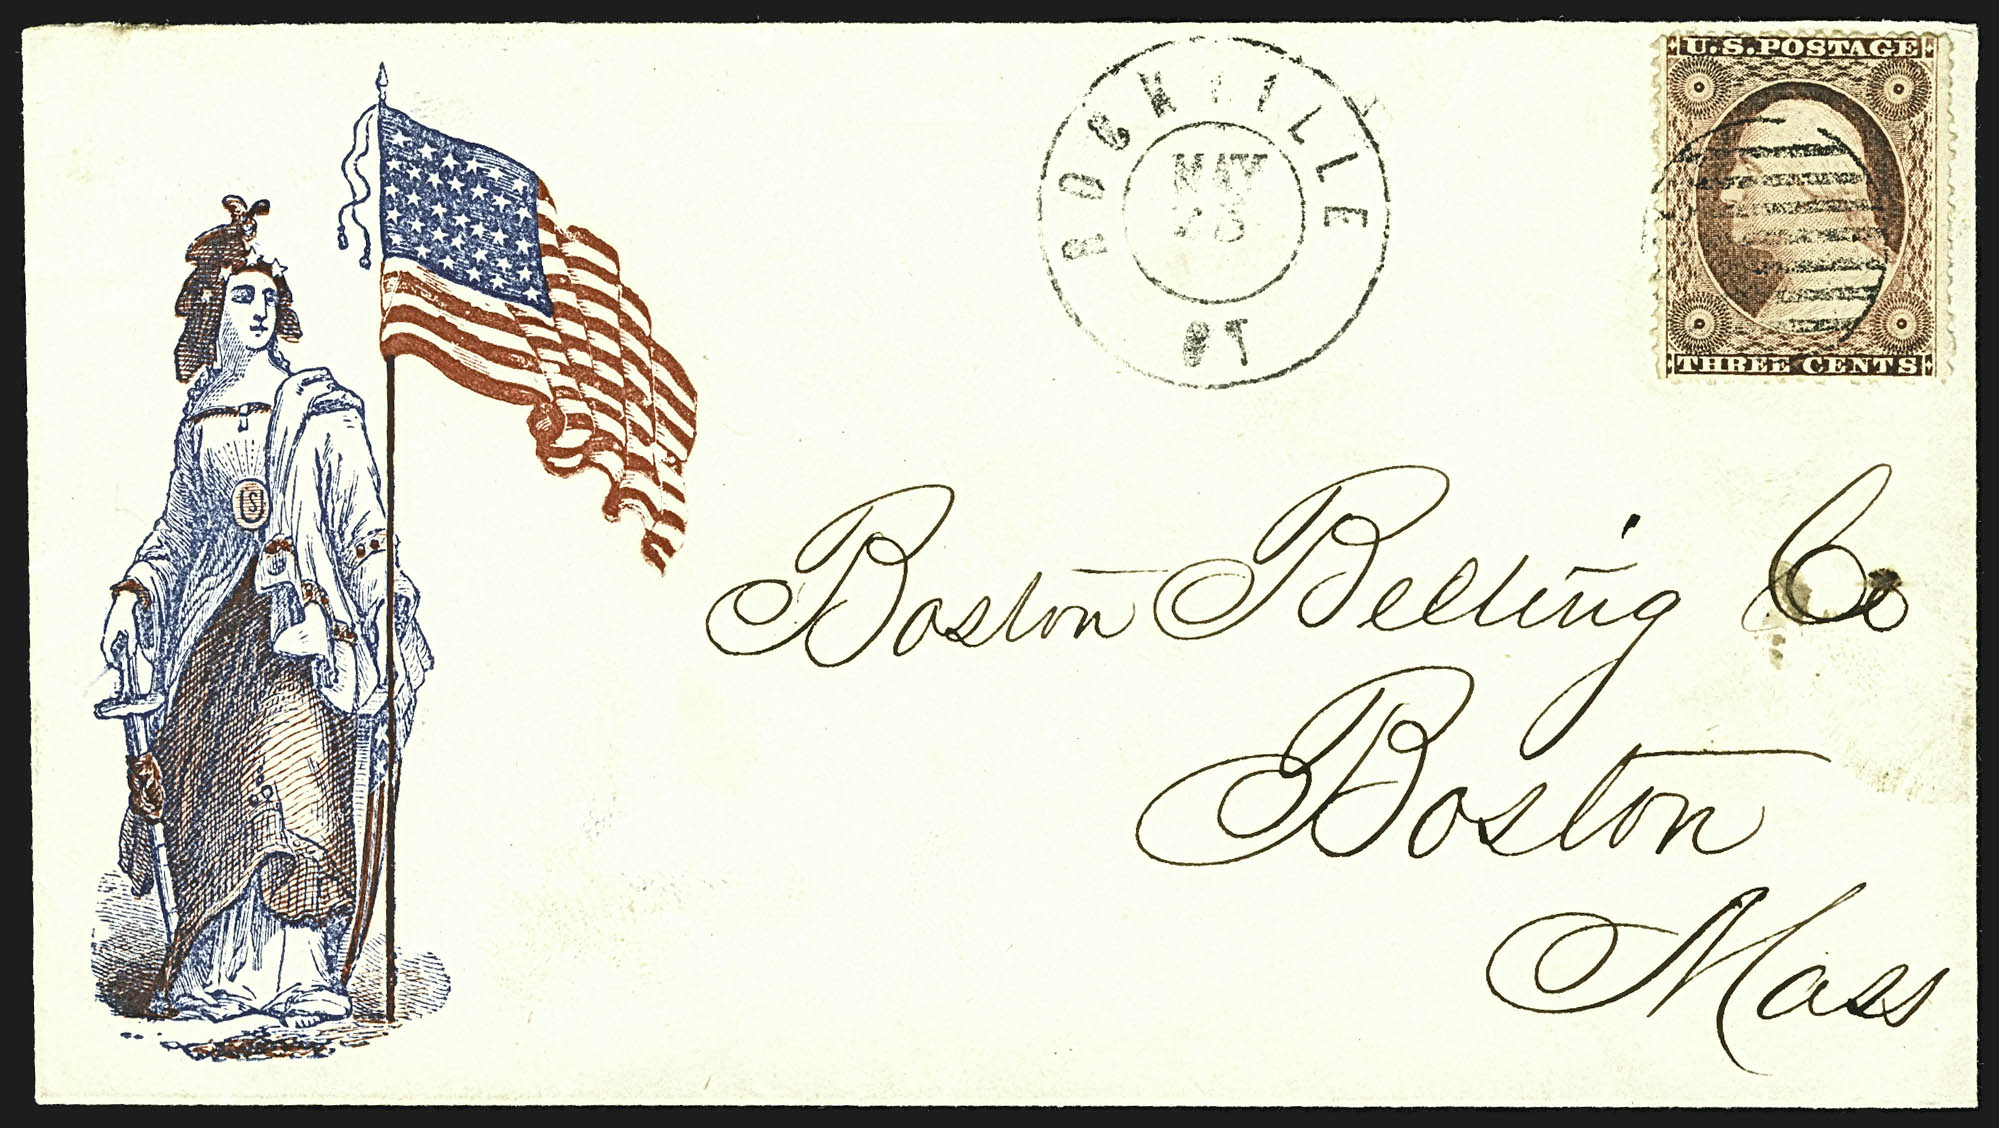 ROCKVILLE
MAY
CT
U.S. POSTAGE
THREE CENTS
US
Boston Belting Co
Boston
Mass